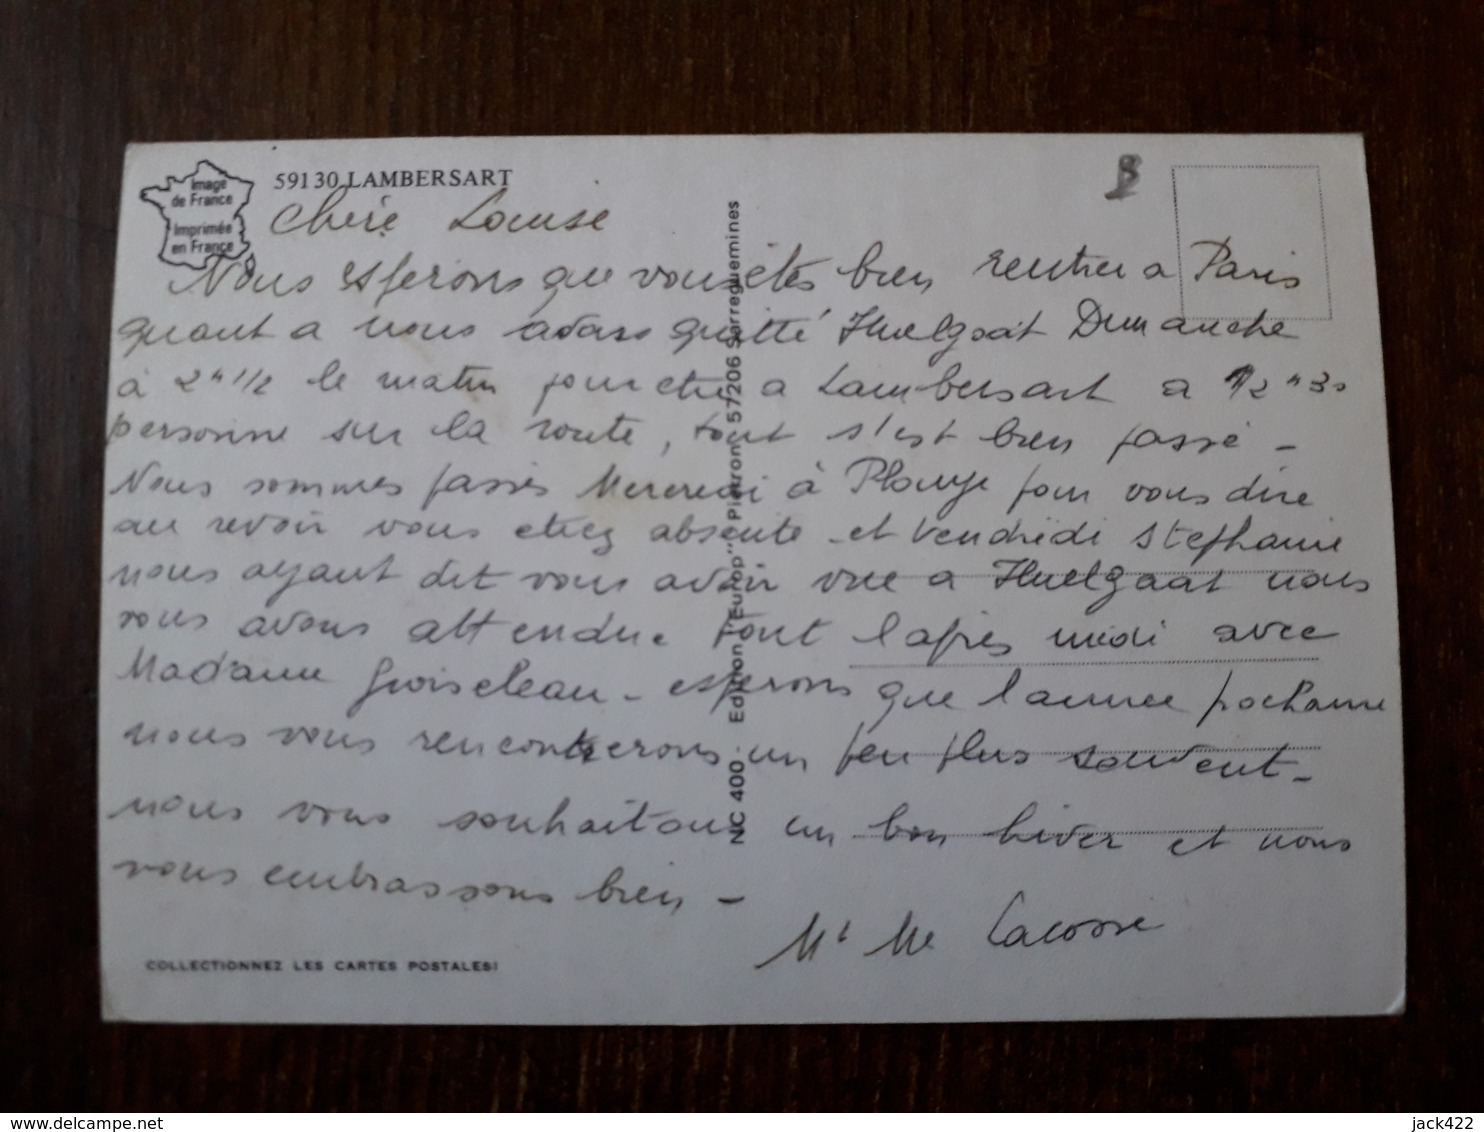 Image
de France
Imprimée
en France
59130 LAMBERSART
Chère Louise
Nous esperons que vous êtes bien rentrer a Paris
quant a nous avons quitté Huelgoat Dimanche
à 2 h 1/2 le matin pour être a Lambersart a 12 h 30
personne sur la route, tout s'est bien passé -
Nous sommes passés Mercredi à Plouye pour vous dire
au revoir vous etiez absente - et Vendredi Stephanie
nous ayant dit vous avoir vue a Huelgoat nous
vous avons attendue tout l'après midi avec
Madame - esperons que l'annee pochaine
nous vous rencontrerons un peu plus souvent -
nous vous souhaitons un bon hiver et nous
vous embrassons bien -
Mr Me
COLLECTIONNEZ LES CARTES POSTALES!
NC 400 - Edition "Europ" Pierron 57206 Sarreguemines
delcampe.net
jack422